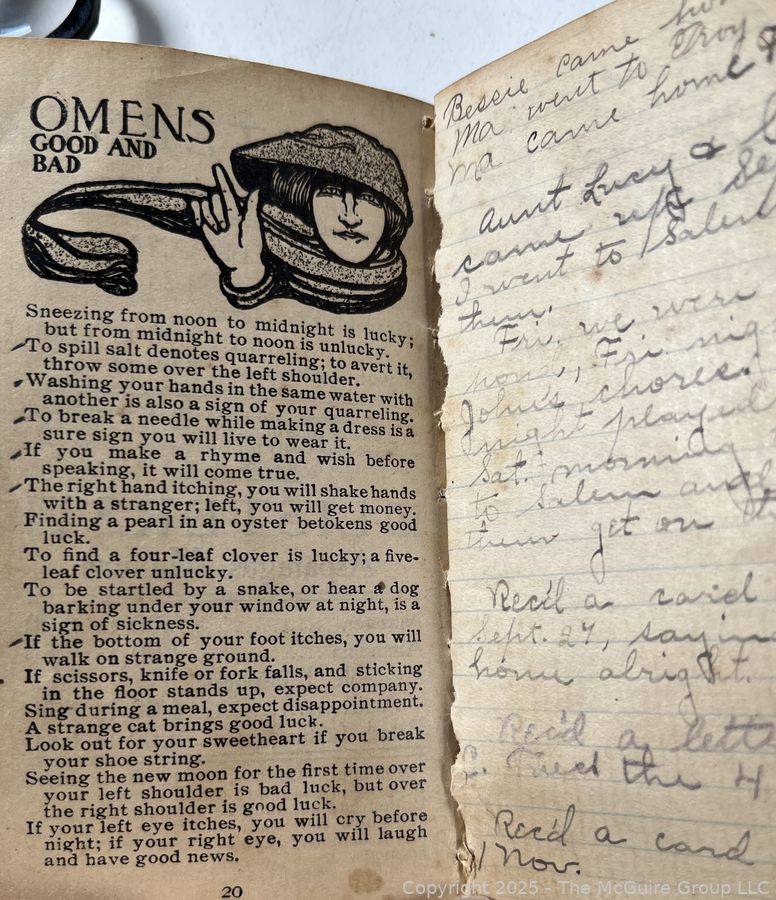 OMENS
GOOD AND
BAD
Sneezing from noon to midnight is lucky;
but from midnight to noon is unlucky.
To spill salt denotes quarreling; to avert it,
throw some over the left shoulder.
Washing your hands in the same water with
another is also a sign of your quarreling.
To break a needle while making a dress is a
sure sign you will live to wear it.
If you make a rhyme and wish before
speaking, it will come true.
The right hand itching, you will shake hands
with a stranger; left, you will get money.
Finding a pearl in an oyster betokens good
luck.
To find a four-leaf clover is lucky; a five-
leaf clover unlucky.
To be startled by a snake, or hear a dog
barking under your window at night, is a
sign of sickness.
If the bottom of your foot itches, you will
walk on strange ground.
If scissors, knife or fork falls, and sticking
in the floor stands up, expect company.
Sing during a meal, expect disappointment.
A strange cat brings good luck.
Look out for your sweetheart if you break
your shoe string.
Seeing the new moon for the first time over
your left shoulder is bad luck, but over
the right shoulder is good luck.
If your left eye itches, you will cry before
night; if your right eye, you will laugh
and have good news.
20
Bessie came
Ma went to Troy
Ma came home
Aunt Lucy &
came up
I went to Salem
them.
Fri. we were
Fri. nig
John's chores.
night played
Sat. morning
to Salem and
them get on
Rec'd a card
Sept. 27, sayin
home alright.
Rec'd a lett
the 4
Rec'd a card
Nov.
Copyright 2025 - The McGuire Group LLC